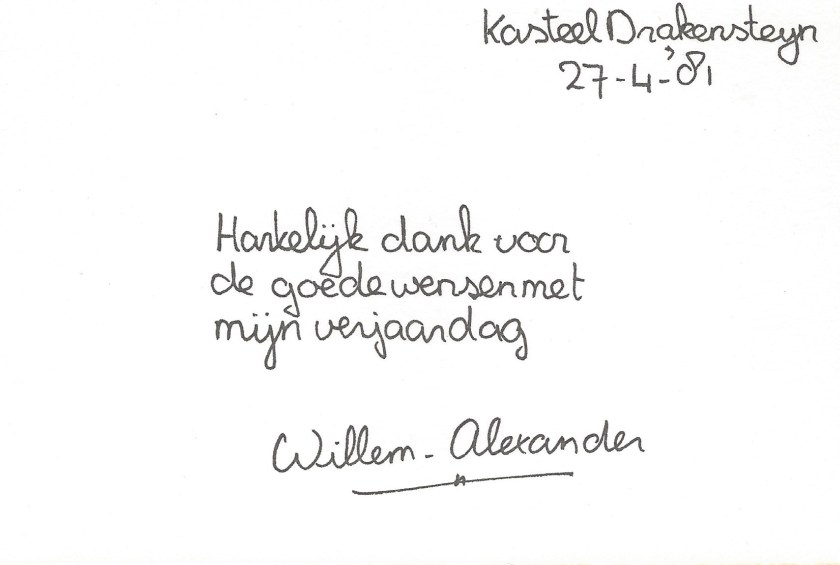 Kasteel Drakensteyn
27-4-'81
Hartelijk dank voor
de goede wensen met
mijn verjaardag
Willem-Alexander